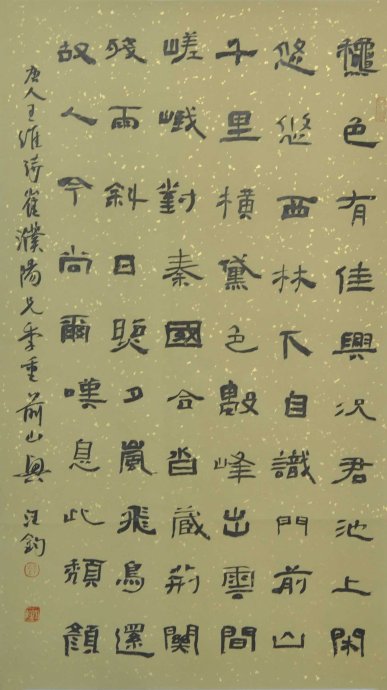 龝色有佳興況君池上閑
悠悠西林下自識門前山
千里橫黛色數峰出雲間
嵯峨對秦國合沓藏荊關
殘雨斜日照夕嵐飛鳥還
故人今尚爾嘆息此頹顏
唐人王維詩崔濮陽兄季重前山興 汪鈞